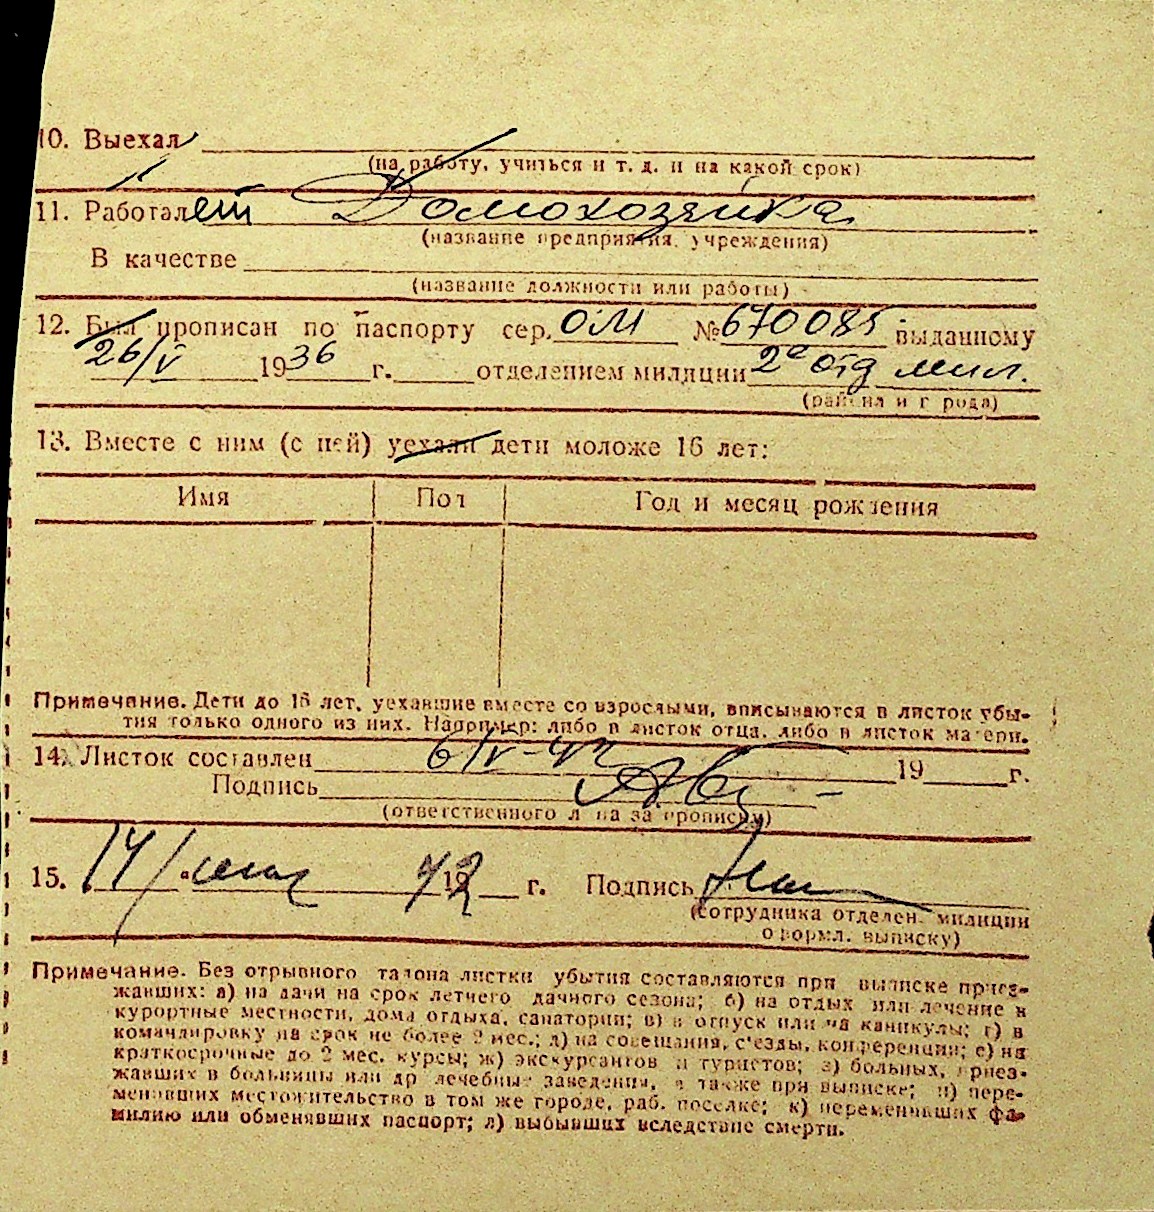 10. Выехал
(на работу, учиться и т. д. и на какой срок)
11. Работает Домохозяйка
(название предприятия, учреждения)
В качестве
(название должности или работы)
12. Был прописан по паспорту сер. ОМ № 670085 выданному
26/V 1936 г. отделением милиции 2е отд мил.
(района и города)
13. Вместе с ним (с ней) уехали дети моложе 16 лет:
Имя Пол Год и месяц рождения
Примечание. Дети до 16 лет, уехавшие вместе со взрослыми, вписываются в листок убы-
тия только одного из них. Например: либо в листок отца, либо в листок матери.
14. Листок составлен 6/V-42 19 г.
Подпись
(ответственного лица за прописку)
15. 14/ 42 19 г. Подпись
(сотрудника отделен. милиции
оформл. выписку)
Примечание. Без отрывного талона листки убытия составляются при выписке приез-
жавших: а) на дачи на срок летнего дачного сезона; б) на отдых или лечение в
курортные местности, дома отдыха, санатории; в) в отпуск или на каникулы; г) в
командировку на срок не более 2 мес.; д) на совещания, с'езды, конференции; е) на
краткосрочные до 2 мес. курсы; ж) экскурсантов и туристов; з) больных, приез-
жавших в больницы или др лечебные заведения, а также при выписке; и) пере-
менивших местожительство в том же городе, раб. поселке; к) переменивших фа-
милию или обменявших паспорт; л) выбывших вследствие смерти.